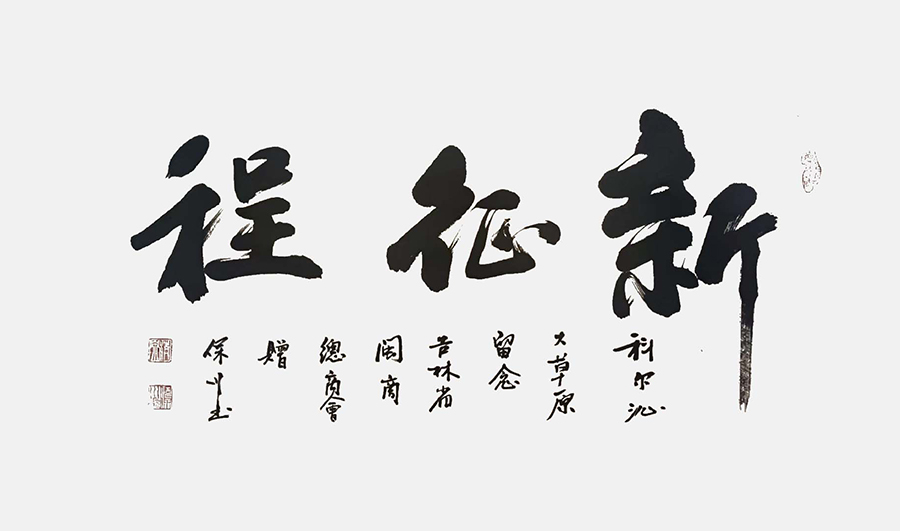 新征程
科尔沁
大草原
留念
吉林省
闽商
總商會
赠
保
书